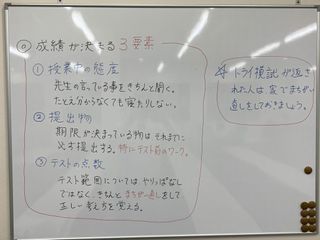 ◎ 成績が決まる3要素
① 授業中の態度
先生の言っている事をきちんと聞く。
たとえ分からなくても寝たりしない。
② 提出物
期限が決まっている物はそれまでに
必ず提出する。特にテスト前のワーク。
③ テストの点数
テスト範囲についてはやりっぱなし
ではなく、きちんとまちがい直しをして
正しい考え方を覚える。
☆ トライ模試が返さ
れた人は家でまちがい
直しをしておきましょう。